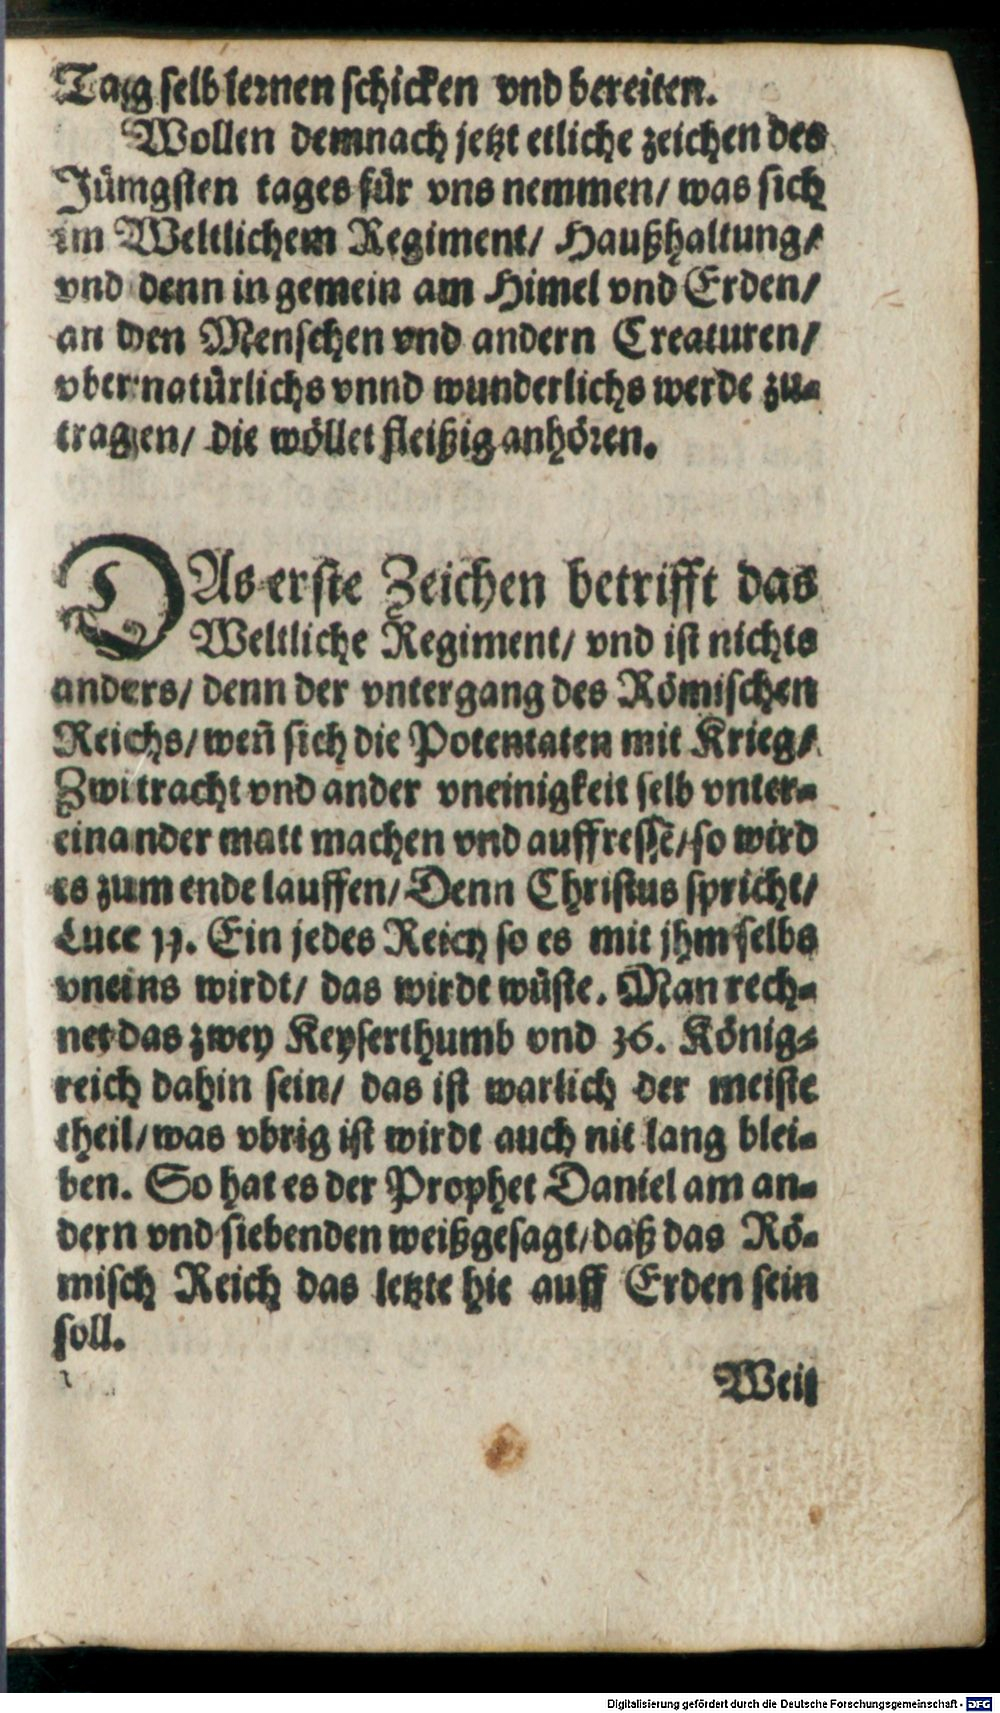 Tag selb lernen schicken vnd bereiten.
Wollen demnach jetzt etliche zeichen des
Jüngsten tages für vns nemmen/ was sich
im Weltlichem Regiment/ Haußhaltung/
vnd denn in gemein am Himel vnd Erden/
an den Menschen vnd andern Creaturen/
vbernatürlichs vnnd wunderlichs werde zu-
tragen/ die wöllet fleißig anhören.
DAs erste Zeichen betrifft das
Weltliche Regiment/ vnd ist nichts
anders/ denn der vntergang des Römischen
Reichs/ weñ sich die Potentaten mit Krieg/
Zwitracht vnd ander vneinigkeit selb vnter-
einander matt machen vnd auffressē/ so wird
es zum ende lauffen/ Denn Christus spricht/
Luce 11. Ein jedes Reich so es mit jhm selbs
vneins wirdt/ das wirdt wüste. Man rech-
net das zwey Keyserthumb vnd 36. König-
reich dahin sein/ das ist warlich der meiste
theil/ was vbrig ist wirdt auch nit lang blei-
ben. So hat es der Prophet Daniel am an-
dern vnd siebenden weißgesagt/ daß das Rö-
misch Reich das letzte hie auff Erden sein
soll.
Weil
Digitalisierung gefördert durch die Deutsche Forschungsgemeinschaft - DFG